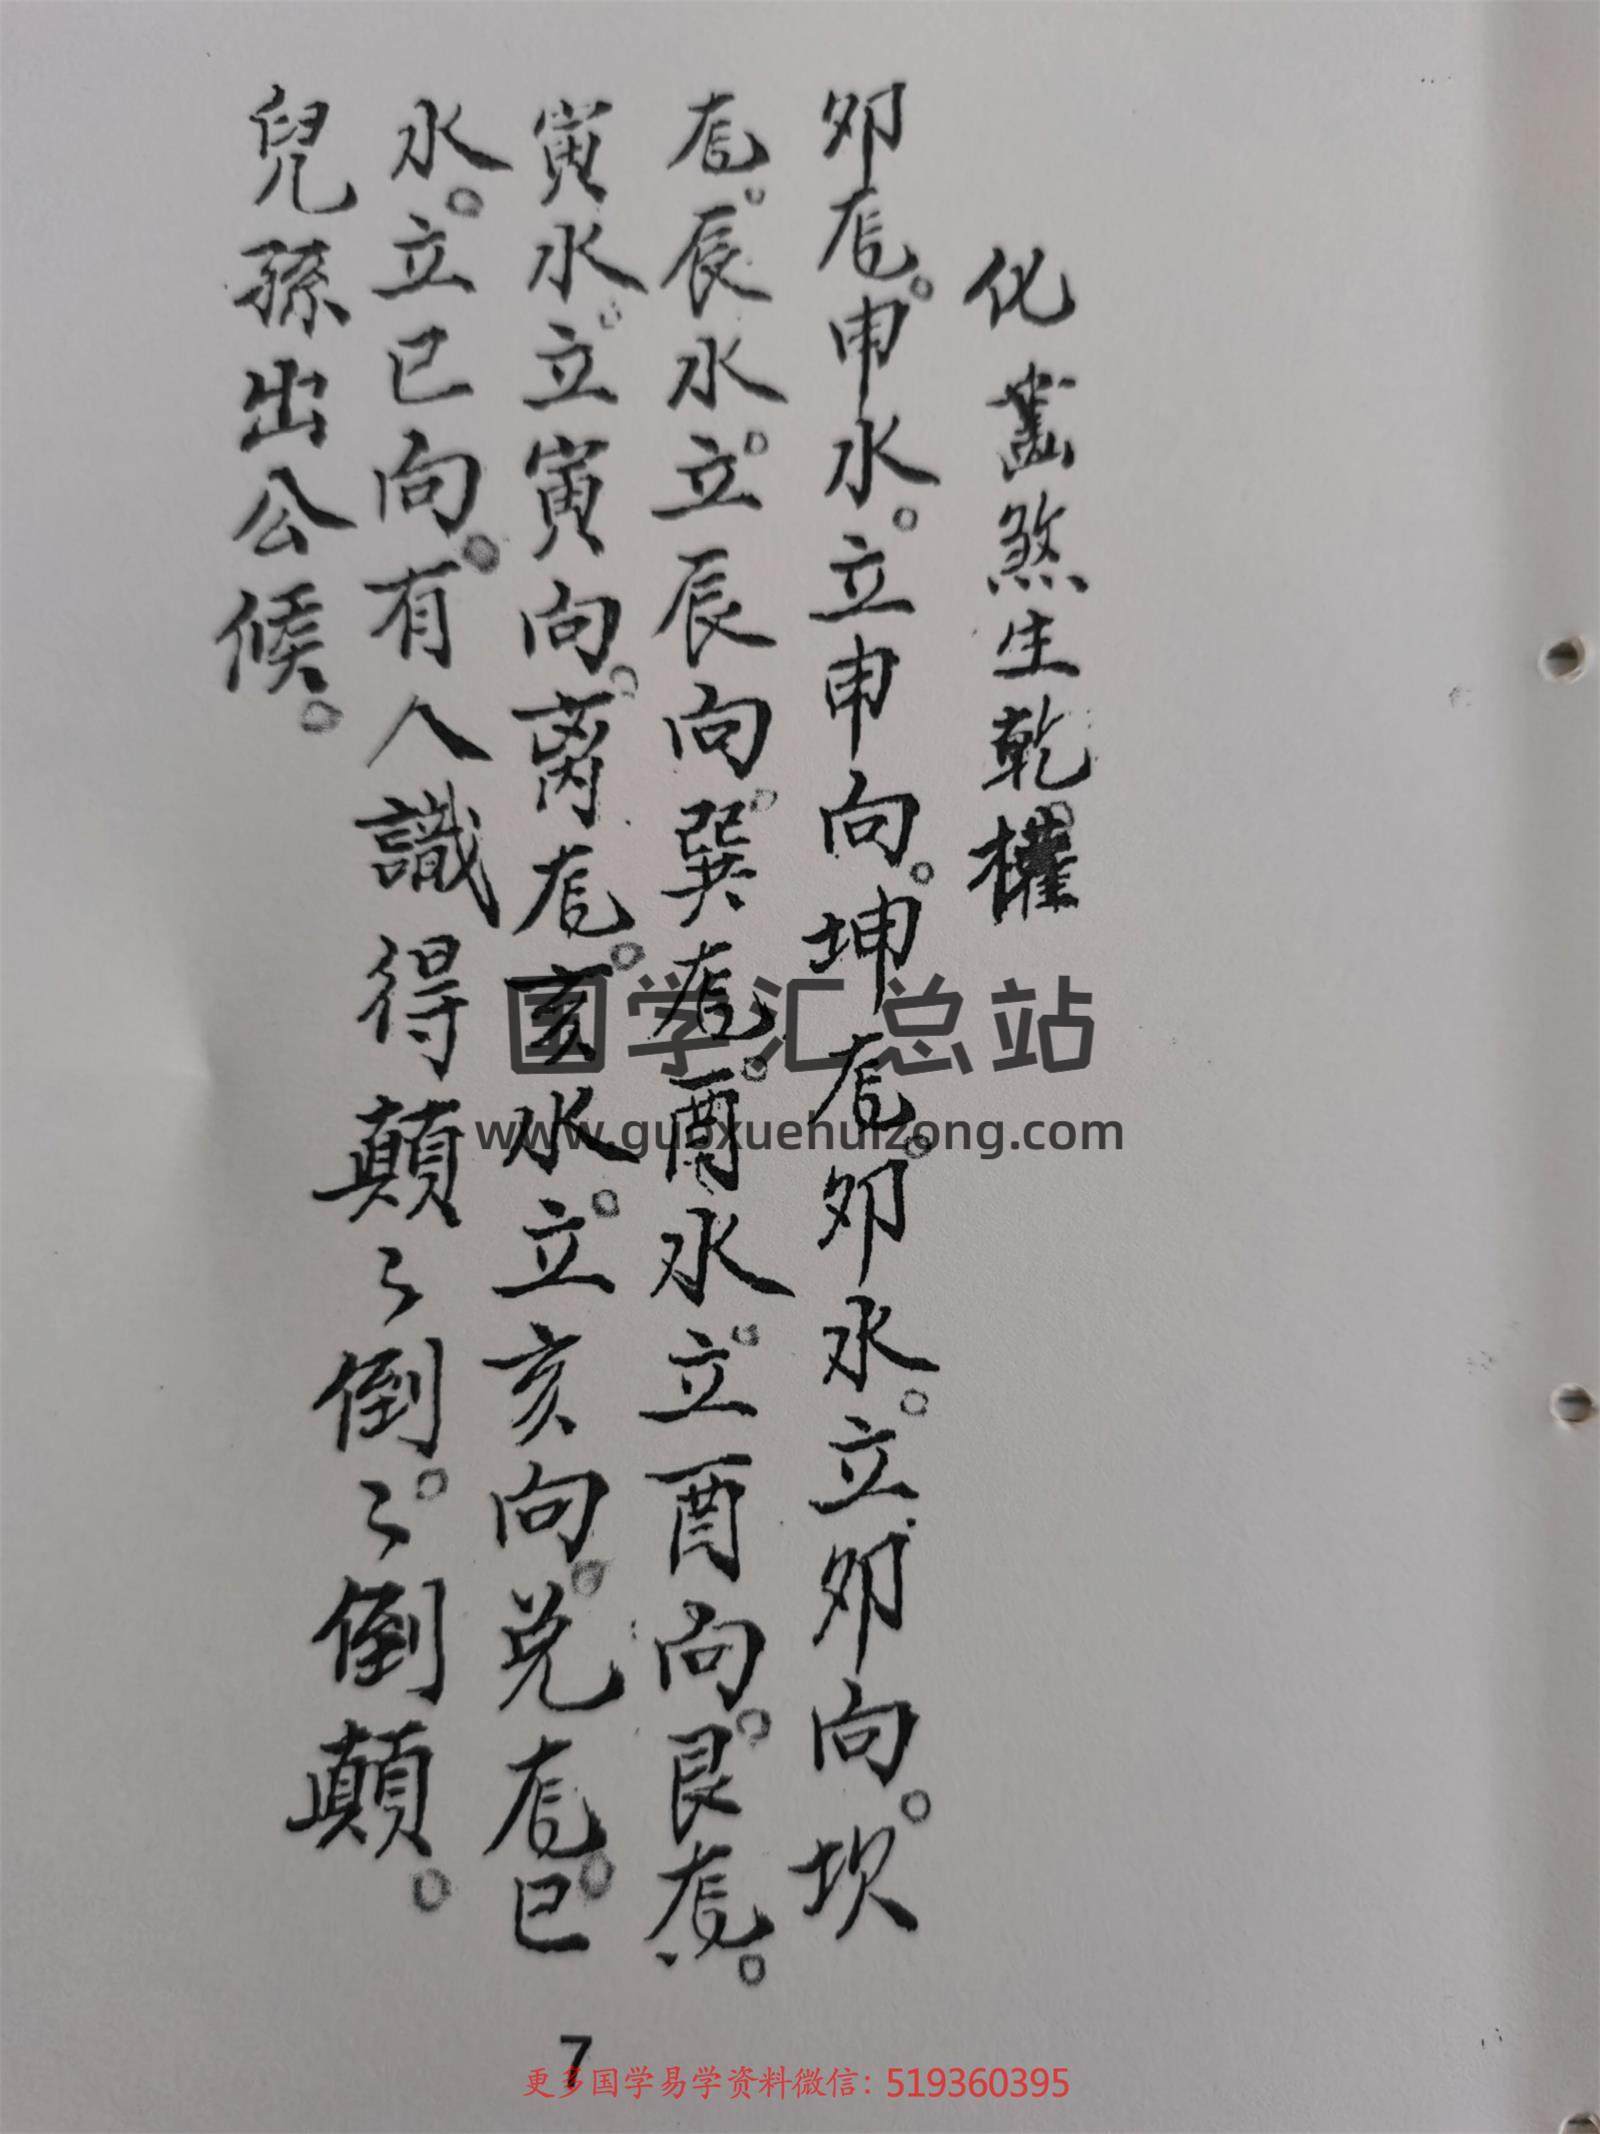 化煞生乾。權
夘龙。申水。立申向。坤龙。夘水。立夘向。坎
龙。辰水。立辰向。巽龙。酉水。立酉向。艮龙。
寅水。立寅向。离龙。亥水。立亥向。兑龙。巳
水。立巳向。有人識得顛〻倒。〻倒顛。
兒孫出公候。
国学汇总站
www.guoxuehuizong.com
7
更多国学易学资料微信：519360395